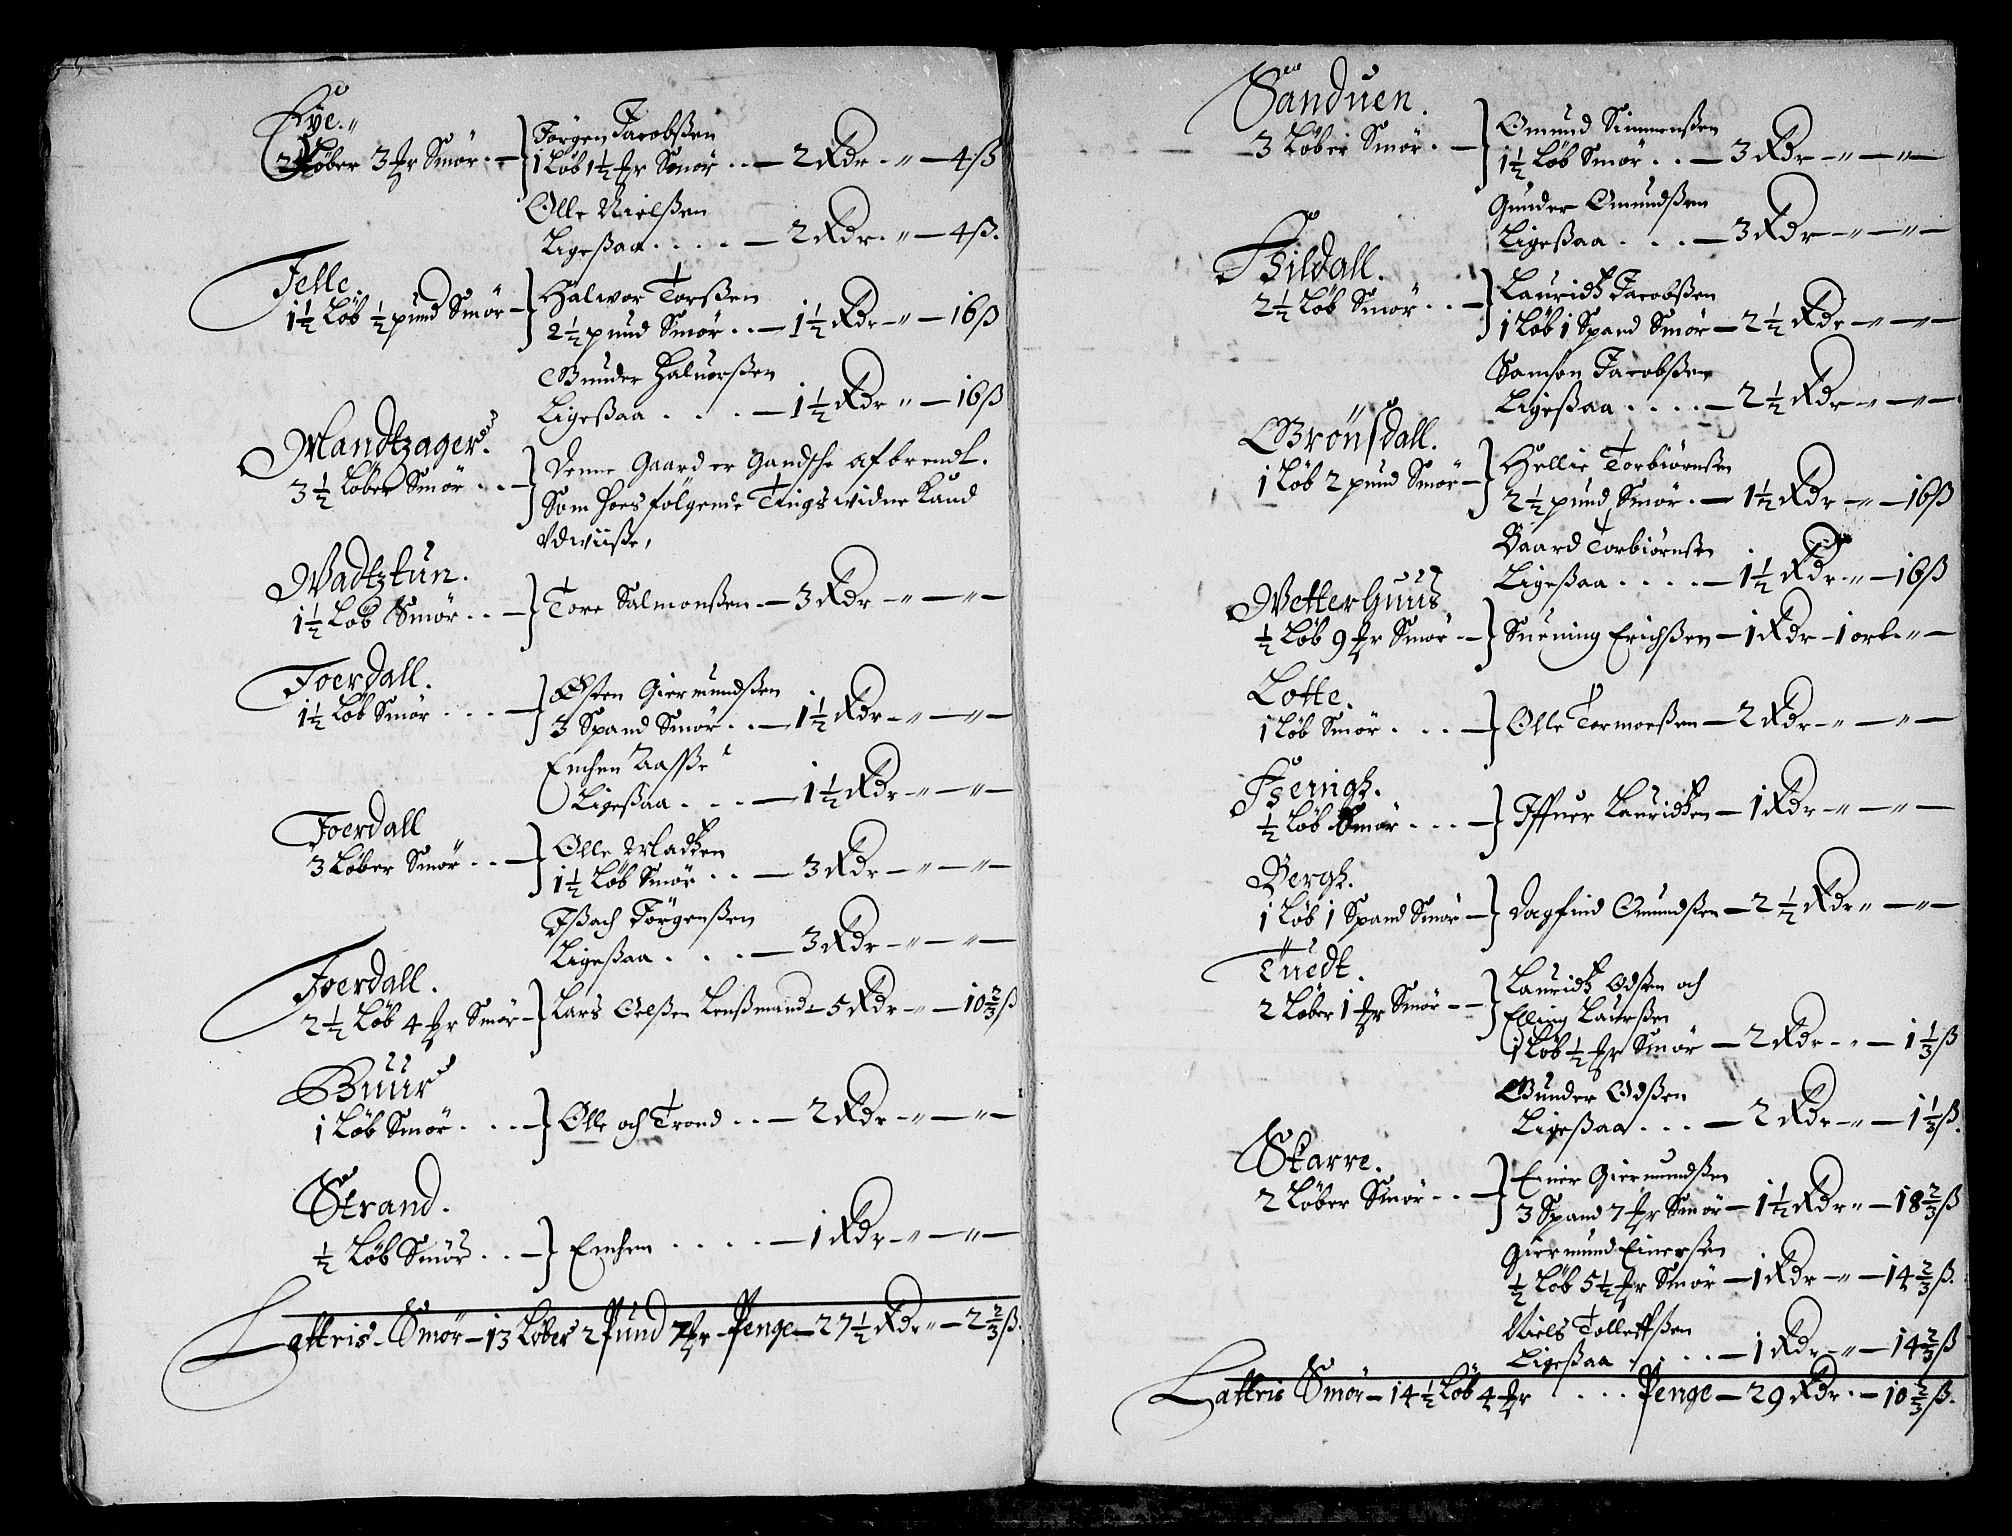 Eye.
2 Løber 3 mr Smør. — Jørgen Jacobßen
1 Løb 1½ mr Smør . . — 2 Rdr. „ — 4 ß
Olle Nielßen
Ligeßaa. . . . — 2 Rdr. „ — 4 ß.
Felle.
1½ Løb ½ pund Smør — Halwor Torßen
2½ pund Smør . . — 1½ Rdr — „ — 16 ß
Gunder Haluorßen
Ligeßaa . . . . — 1½ Rdr „ — 16 ß
Mandtzager.
3½ Løber Smør . . — Denne Gaard er Gandsche afbrendt.
Som hoesfølgende Tingswidne Kand
Vdwiiße,
Wadtztun.
1½ Løb Smør . . — Tore Salmonßen — 3 Rdr — „ — „ —
Foerdall.
1½ Løb Smør . . . — Østen Giermundßen
3 Spand Smør . . — 1½ Rdr — „ — „ —
Enchen Aasße
Ligeßaa . . . — 1½ Rdr — „ — „ —
Foerdall
3 Løber Smør . . — Olle Madtzen
1½ Løb Smør . . — 3 Rdr — „ — „ —
Ißach Jørgenßen
Ligeßaa . . . — 3 Rdr — „ — „ —
Foerdall.
2½ Løb 4 mr Smør — Lars Oelßen Lenßmand — 5 Rdr — „ — 10⅔ ß
Buur
1 Løb Smør . . . — Olle och Trond . . — 2 Rdr — „ — „ —
Strand.
½ Løb Smør . . — Enchen . . . . — 1 Rdr — „ — „ —
Lattris. Smør — 13 Løber 2 Pund 7 mr — Penge — 27½ Rdr „ — 2⅔ ß.
Sanduen.
3 Løber Smør. — Omund Simmenßen
1½ Løb Smør . . — 3 Rdr — „ — „ —
Gunder Omundßen
Ligeßaa . . . — 3 Rdr — „ — „ —
Hildall.
2½ Løb Smør . . — Lauridtz Jacobßen
1 Løb 1 Spand Smør — 2½ Rdr — „ — „ —
Samson Jacobßen
Ligeßaa . . . . — 2½ Rdr — „ — „ —
Grönsdall.
1 Løb 2 pund Smør — Hellie Torbiørnsen
2½ pund Smør . — 1½ Rdr — „ — 16 ß
Baard Torbiørnsen
Ligeßaa . . . . — 1½ Rdr. „ — 16 ß
Wetterhuus
½ Løb 9 mr Smør — Suening Erichßen — 1 Rdr — 1 ort. „ —
Lotte.
1 Løb Smør . . . — Olle Tormoeßen — 2 Rdr — „ — „ —
Isenigh.
½ Løb Smør . . . — Iffuer Lauridtzen — 1 Rdr — „ — „ —
Bergh.
1 Løb 1 Spand Smør — Dagfind Omundßen — 2½ Rdr „ — „ —
Tuedt.
2 Løber 1 mr Smør — Lauridtz Odsen och
Elling Laurßen
1 Løb ½ mr Smør — 2 Rdr — „ — 1⅓ ß
Gunder Odßen
Ligeßaa . . . — 2 Rdr — „ — 1⅓ ß.
Skarre.
2 Løber Smør . . — Einer Giermundßen
3 Spand 7 mr Smør — 1½ Rdr „ — 18⅔ ß
Giermund Einersen
½ Løb 5½ mr Smør — 1 Rdr — „ — 14⅔ ß.
Niels Tolleffßen
Ligeßaa . . . . — 1 Rdr — „ — 14⅔ ß
Lattris Smør — 14½ Løb 4 mr . . . Penge — 29 Rdr . — 10⅔ ß.